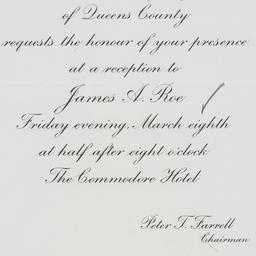 of Queens County
requests the honour of your presence
at a reception to
James A. Roe
Friday evening, March eighth
at half after eight o'clock
The Commodore Hotel
Peter T. Farrell
Chairman